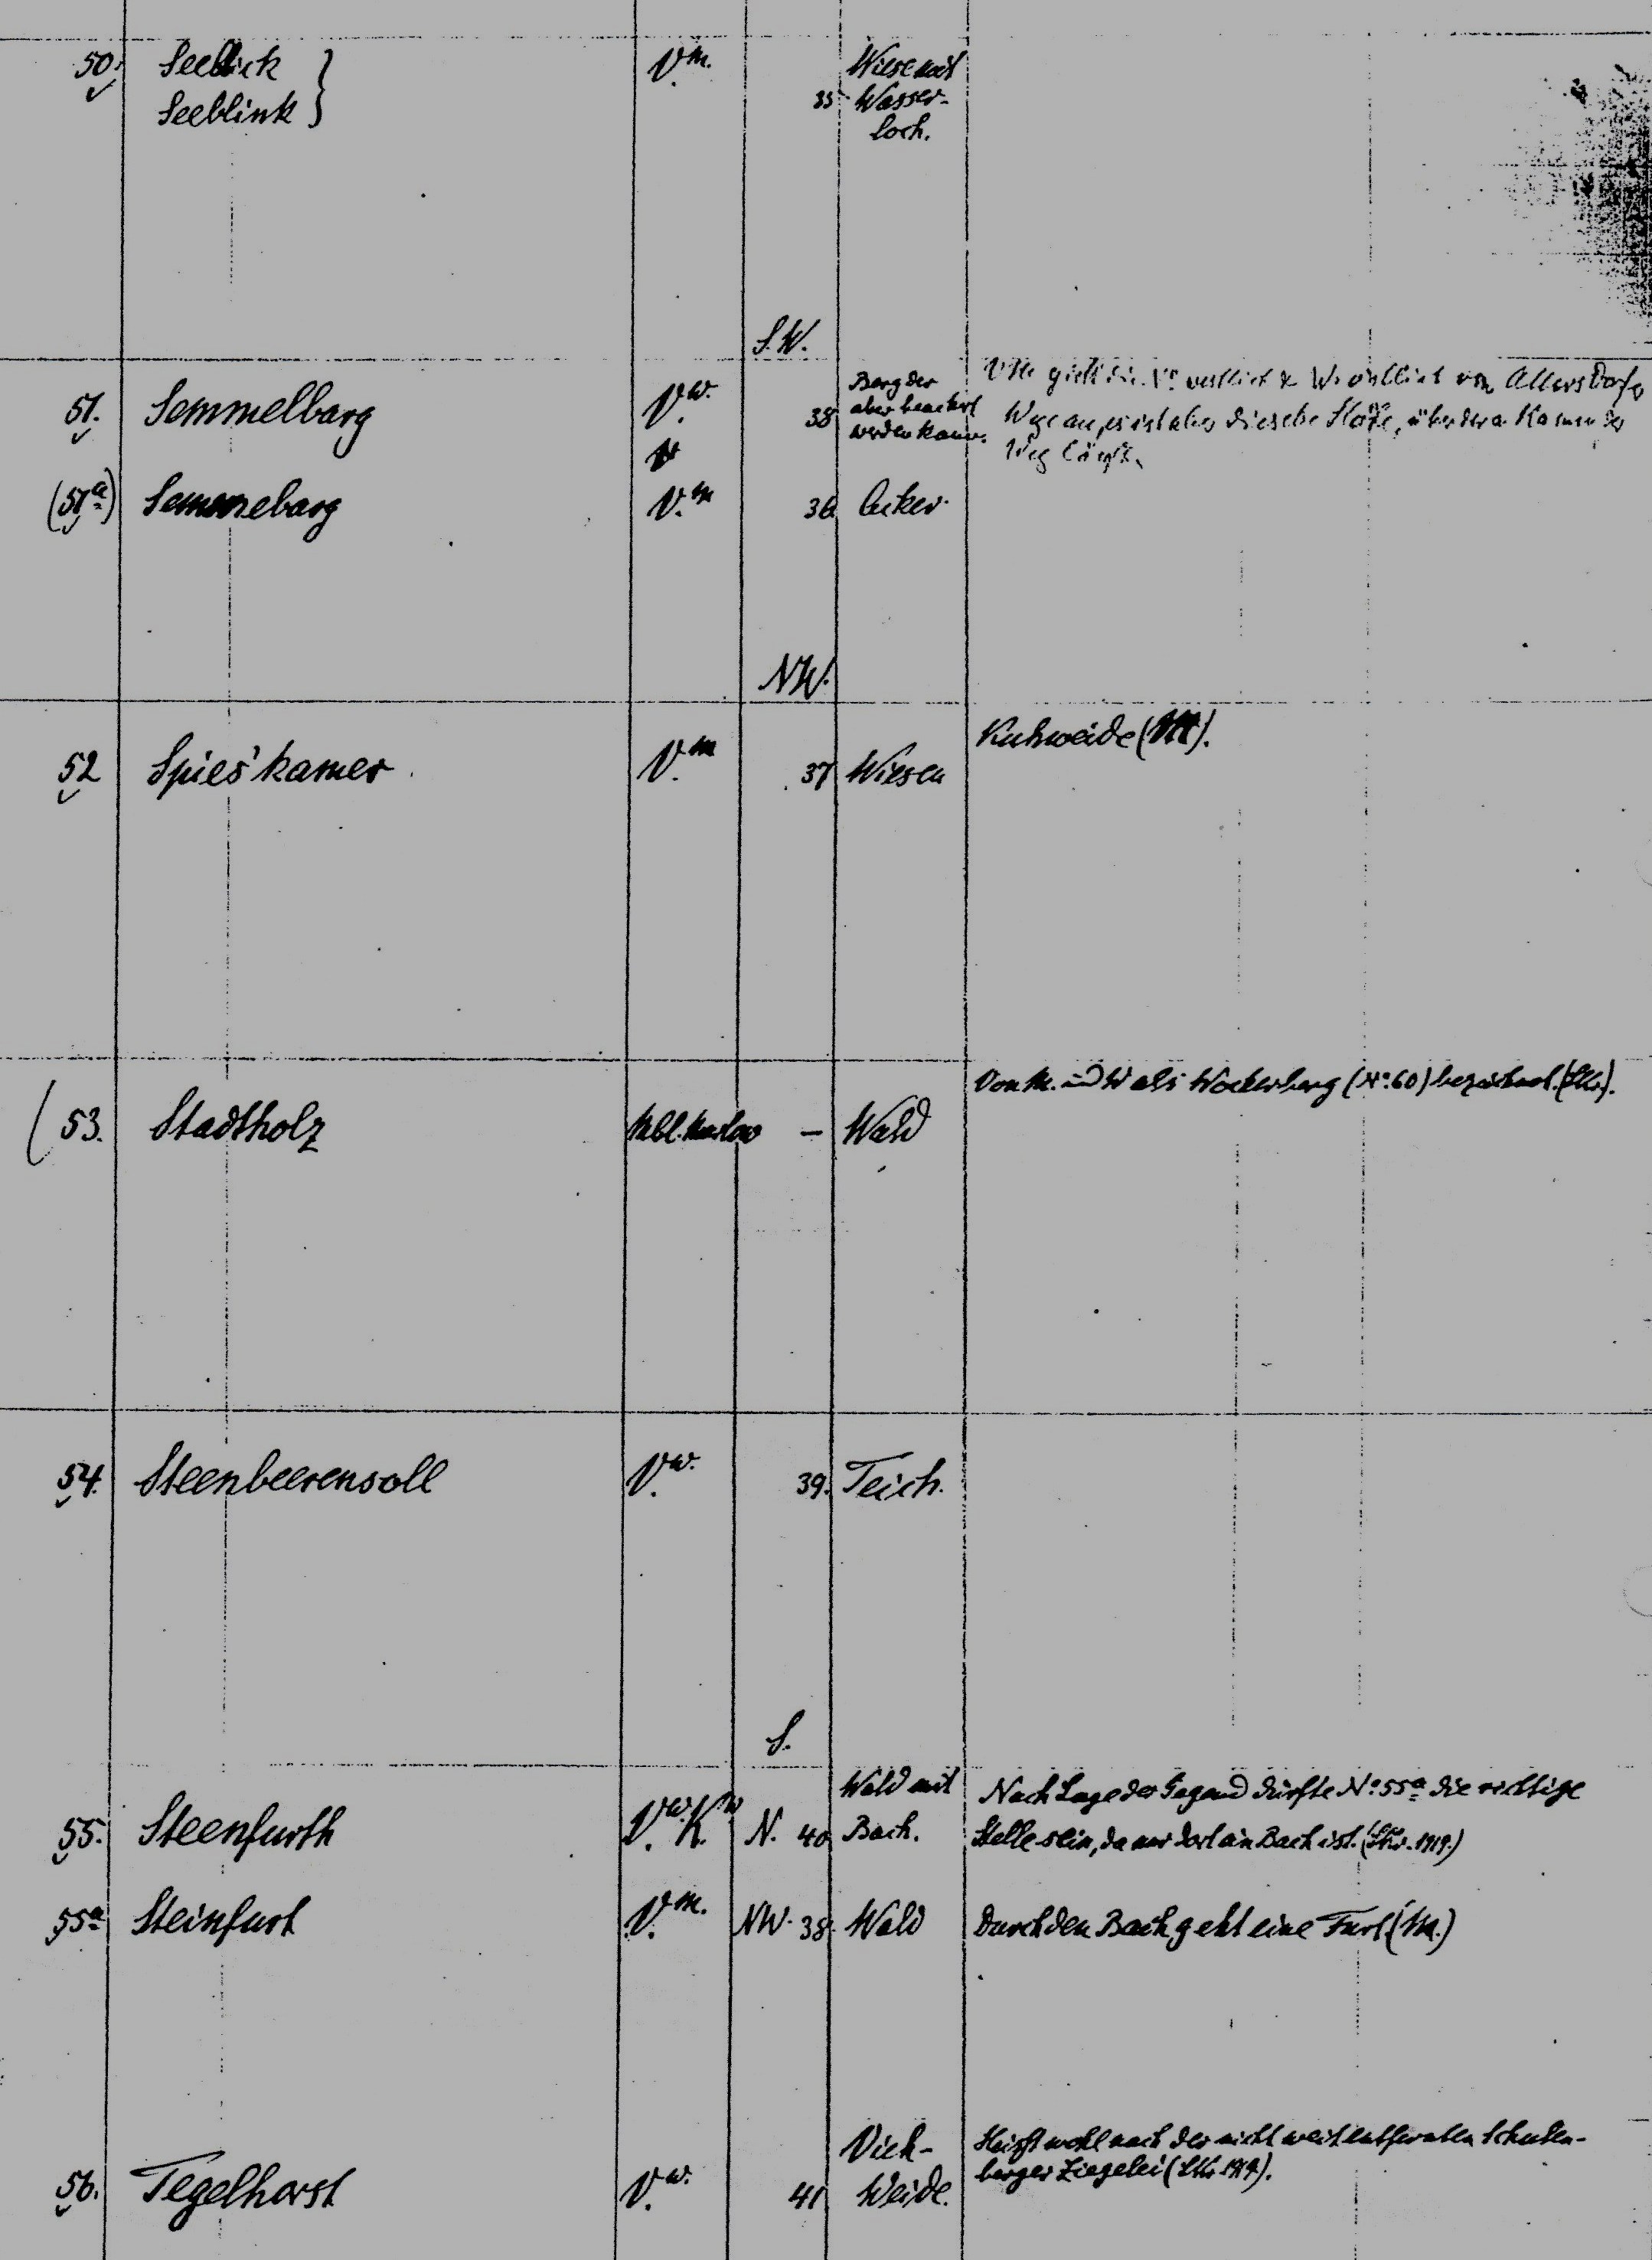 50. Seeblick } V.m. Wiese mit
Seeblink 35 Wasser-
loch.
S.W.
51. Semmelbarg V.w. 38 Berg der
aber beackert
werden kann.
Wege an, es ist aber dieselbe Stelle, über deren Kamm der
Weg läuft.
(51a) Semmebarg V.m 36 Acker.
NW.
52 Spies'kamer V.m 37 Wiesen Kuhweide (M).
53. Stadtholz Mbl. Marlow – Wald Von M. und W als Wockerbarg (No. 60) bezeichnet. (Skr.)
54. Steenbeerensoll V.w. 39. Teich.
S.
55. Steenfurth V.w. K.w N. 40 Wald mit
Bach.
Nach Lage der Gegend dürfte No. 55a die richtige
Stelle sein, da nur dort ein Bach ist. (Skr. 1919.)
55a Steinfurt V.m. NW. 38. Wald Durch den Bach geht eine Furt (M.)
56. Tegelhorst V.w. 41 Vieh-
Weide.
Heisst wohl nach der nicht weit entfernten Schulen-
berger Ziegelei (Skr 1919).